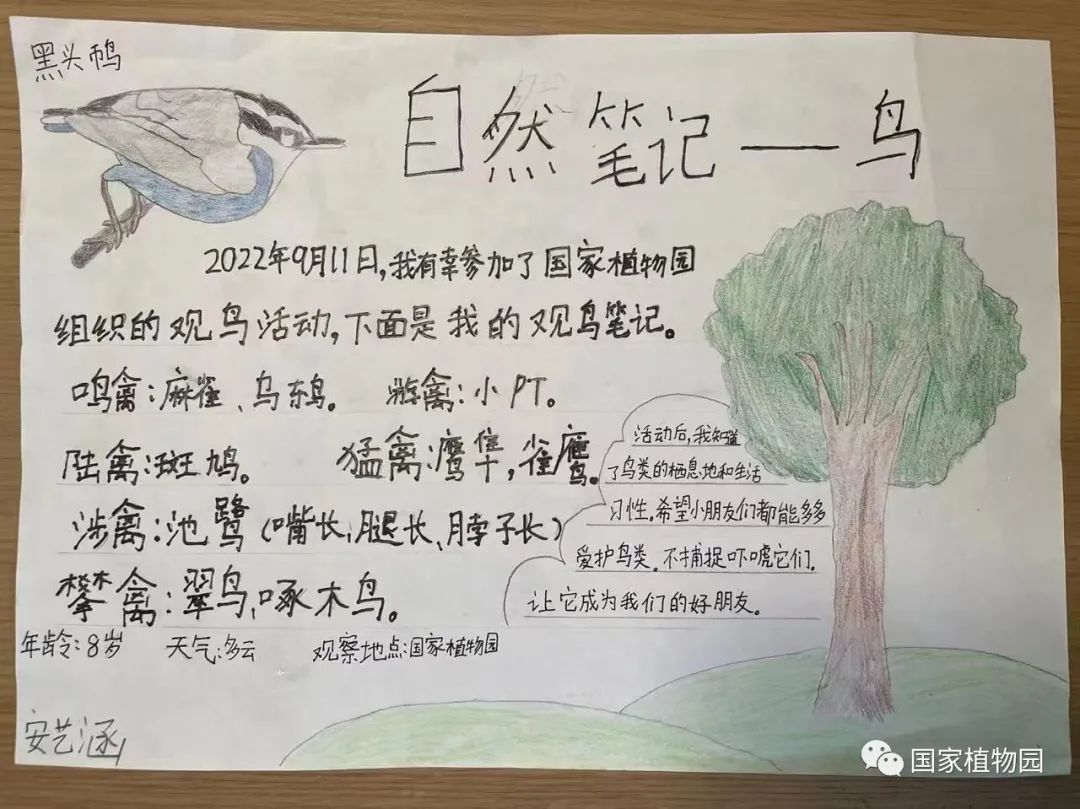 黑头䴓
自然笔记——鸟
2022年9月11日,我有幸参加了国家植物园
组织的观鸟活动,下面是我的观鸟笔记。
鸣禽:麻雀、乌鸫。 游禽:小PT。
陆禽:斑鸠。 猛禽:鹰隼,雀鹰。
涉禽:池鹭(嘴长、腿长、脖子长)
攀禽:翠鸟,啄木鸟。
活动后,我知道
了鸟类的栖息地和生活
习性。希望小朋友们都能多多
爱护鸟类。不捕捉吓唬它们.
让它成为我们的好朋友。
年龄:8岁 天气:多云 观察地点:国家植物园
安艺涵
国家植物园